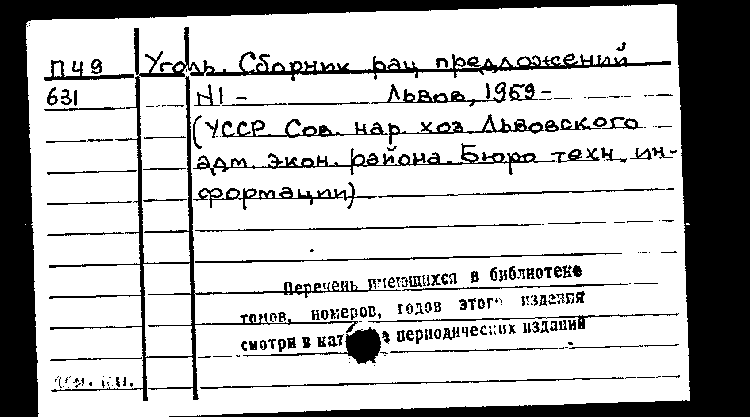 П49 Уголь. Сборник рац предложений
631 N1 - Львов, 1959 -
(УССР. Сов. нар. хоз. Львовского
адм. экон. района. Бюро техн. ин-
формации)
Перечень имеющихся в библиотеке
томов, номеров, годов этого издания
смотри в периодических изданий